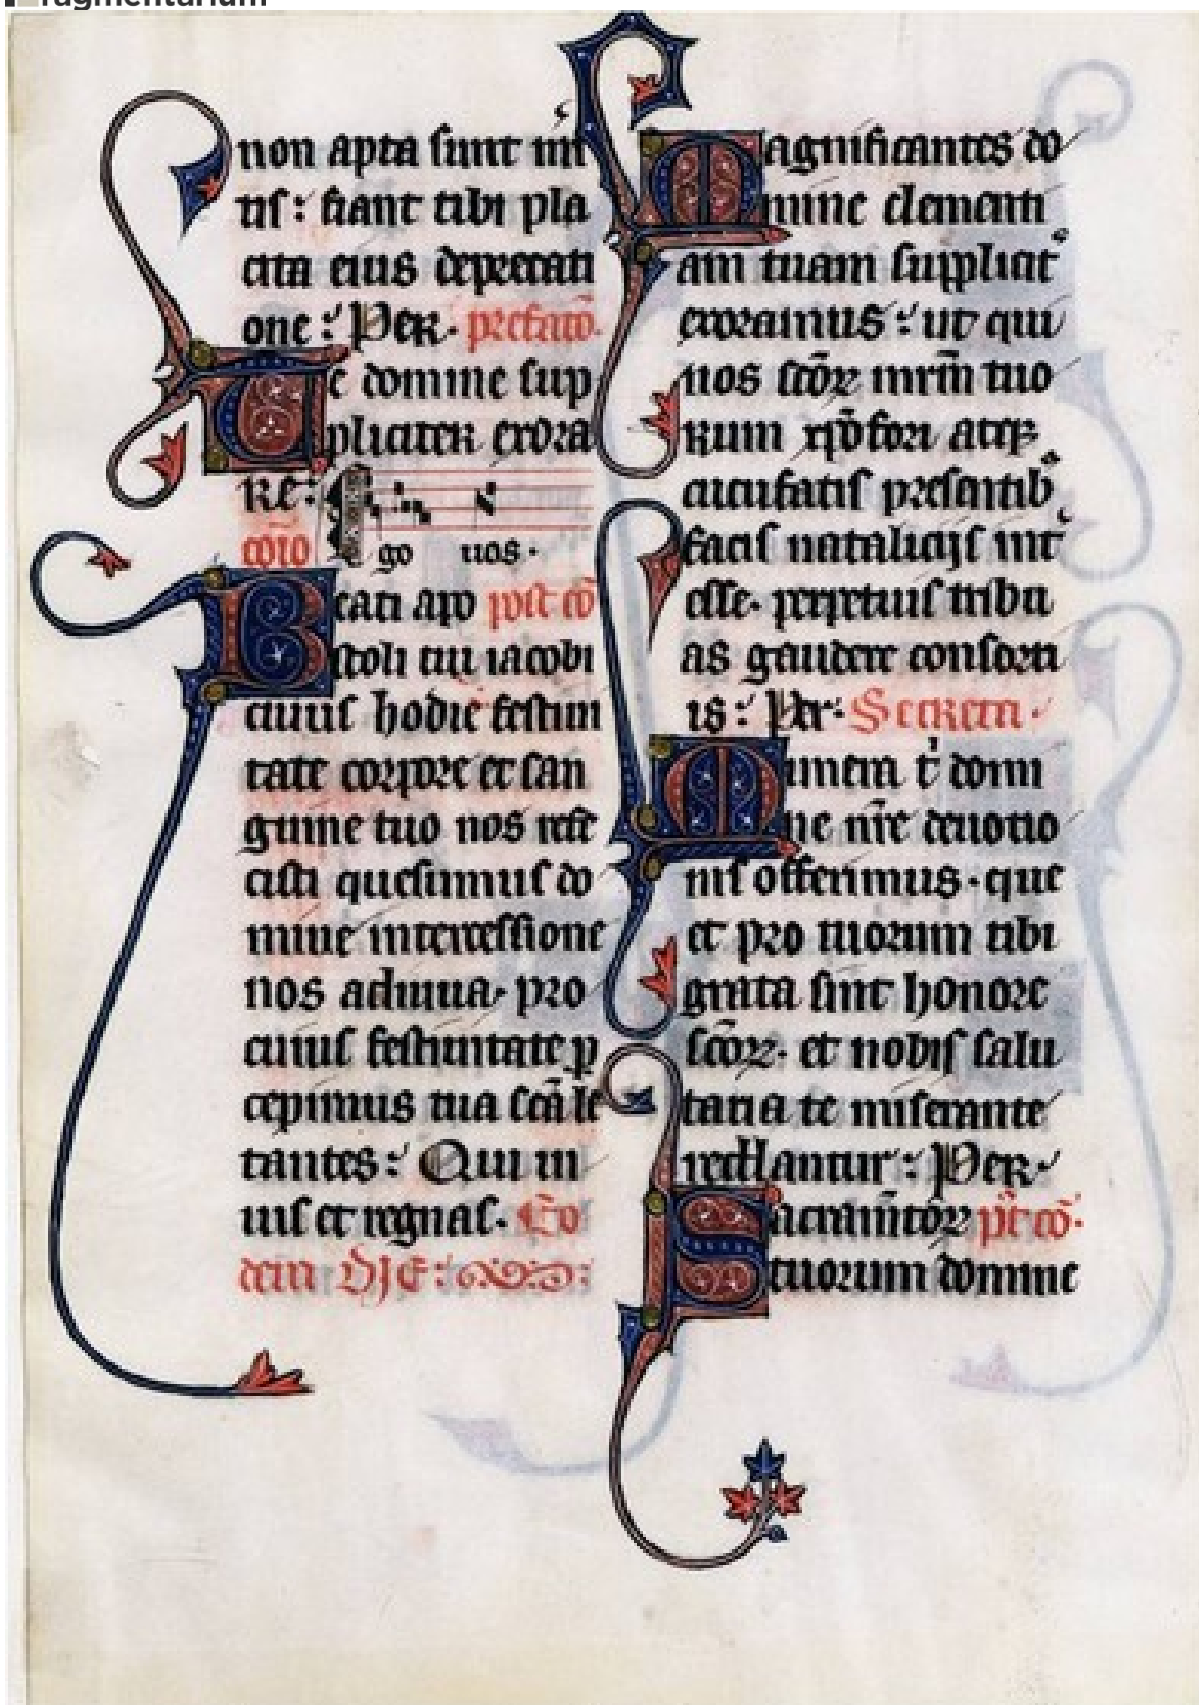 ragmentarium
non apta sunt m̃i
tis : fiant tibi pla
cita eius deprecati
one : Per. prefatõ.
Te domine sup
pliciter exora
re :
cõio Ego uos.
Beati apo post cõ
stoli tui iacobi
cuius hodie festiui
tate corpore et san
guine tuo nos refe
cisti quesumus do
mine intercessione
nos adiuua. pro
cuius festiuitate ꝑ
cepimus tua scã le
tantes : Qui ui
uis et regnas. Eo
dem DIE :
Magnificantes do
mine clementi
am tuam suppliciť
exoramus : ut qui
nos scõꝝ mrm̃ tuo
rum xp̃ofori atqꝫ
cucufatis presentib᾽
facis nataliciis int᾽
esse. perpetuis tribu
as gaudere consorti
is : Per : Secreta.
Munera t᾽ domi
ne nr̃e deuotio
nis offerimus. que
et pro tuorum tibi
grata sint honore
scõꝝ. et nobis salu
taria te miserante
reddantur : Per.
Sacramñtoꝝ pt̃ cõ.
tuorum domine